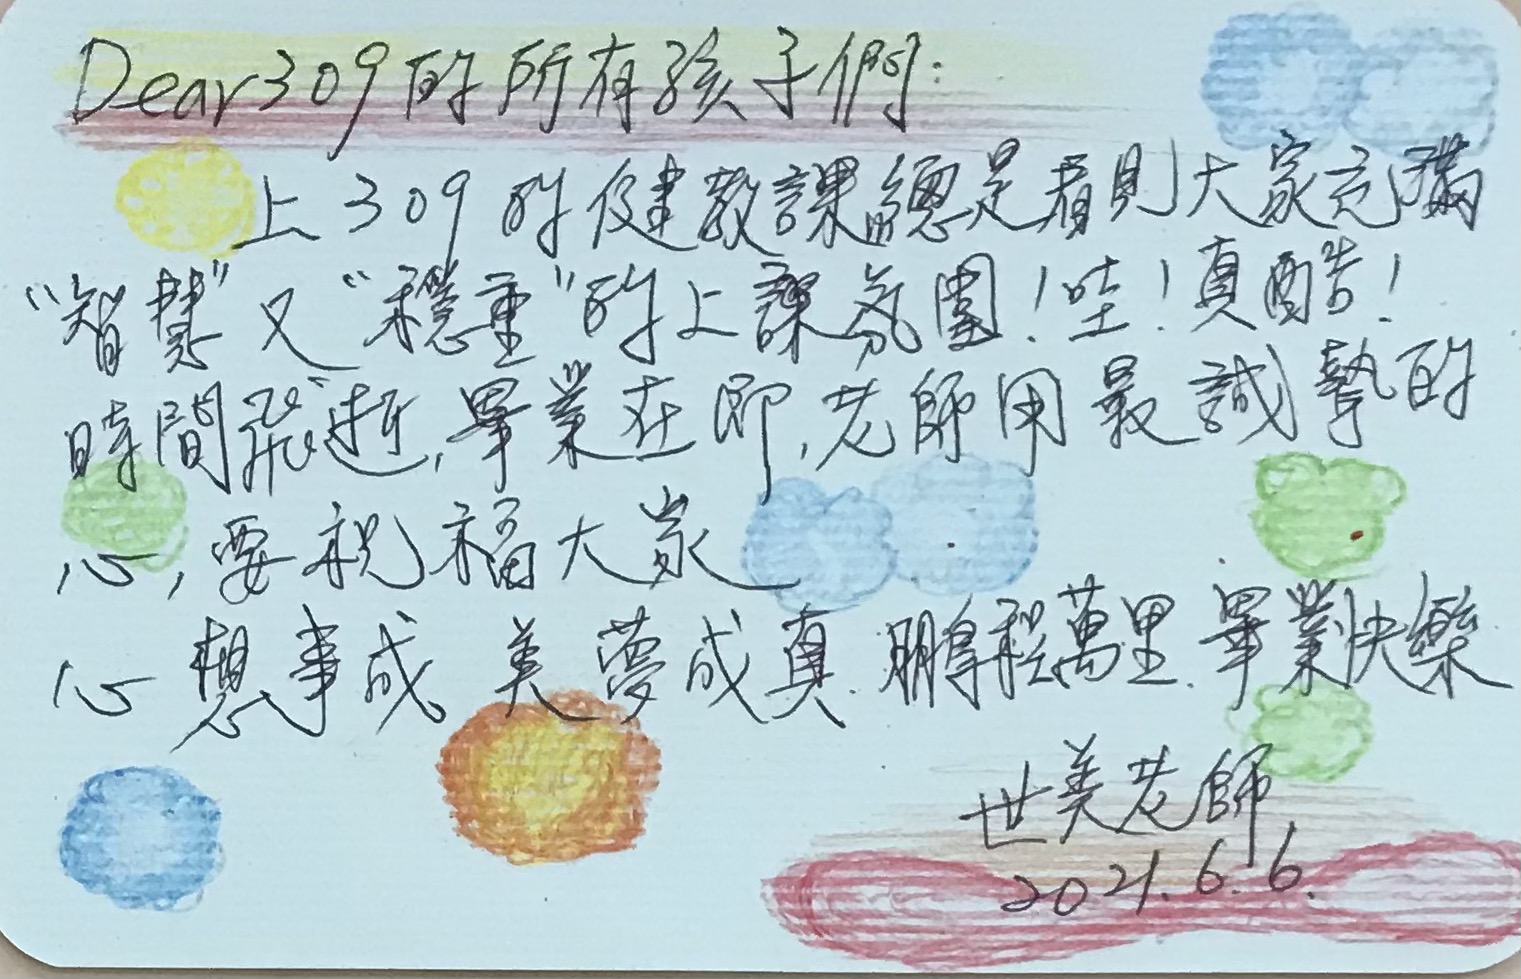 Dear 309的所有孩子們:
上309的健教課總是看見大家充滿
“智慧”又“穩重”的上課氛圍!哇!真酷!
時間飛逝,畢業在即,老師用最誠摯的
心,要祝福大家
心想事成.美夢成真.鵬程萬里.畢業快樂
世美老師
2021.6.6.